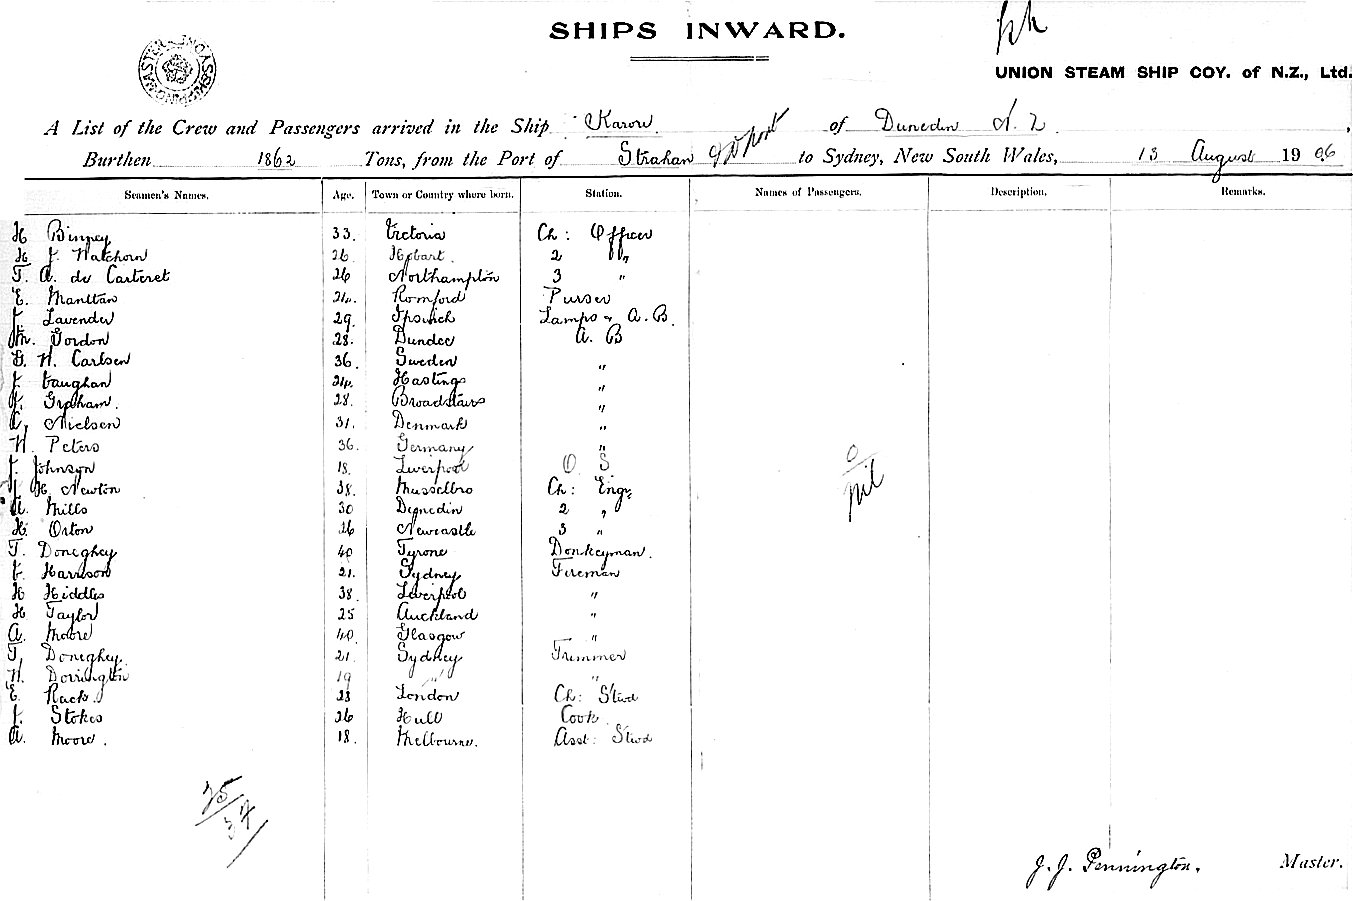 SHIPS INWARD.
UNION STEAM SHIP COY. of N.Z., Ltd.
A List of the Crew and Passengers arrived in the Ship Karori of Dunedin N. Z,
Burthen 1862 Tons, from the Port of Strahan to Sydney, New South Wales, 13 August 1906
Seamen's Names. Age. Town or Country where born. Station. Names of Passengers. Description. Remarks.
H Binney 33. Victoria Ch: Officer
H J. Watchorn 26 Hobart. 2 "
T. A. de Carteret 26 Northampton 3 "
E. Manttan 24. Romford Purser
J. Lavender 29. Ipswich Lamps & A. B.
Wm. Gordon 28. Dundee A. B
G. W. Carlsen 36. Sweden "
J. Vaughan 24. Hastings "
Graham. 28. Broadstairs "
Nielsen 31. Denmark "
W. Peters 36. Germany "
J. Johnson 18. Liverpool O S
J H. Newton 38. Musselbro Ch: Engr
Mills 30 Dunedin 2 "
H. Orton 26 Newcastle 3 "
T. Doneghey 40 Tyrone Donkeyman.
J. Harrison 21. Sydney Fireman
H Hiddles 38. Liverpool "
H Taylor 25 Auckland "
A. Moore 40. Glasgow "
T. Doneghey. 21. Sydney Trimmer
W. Dorrington 19 " "
E. Rack. 28 London Ch: Stwd
J. Stokes 26 Hull Cook.
A. Moore. 18. Melbourne. Asst: Stwd
nil
25
37
J. J. Pennington. Master.